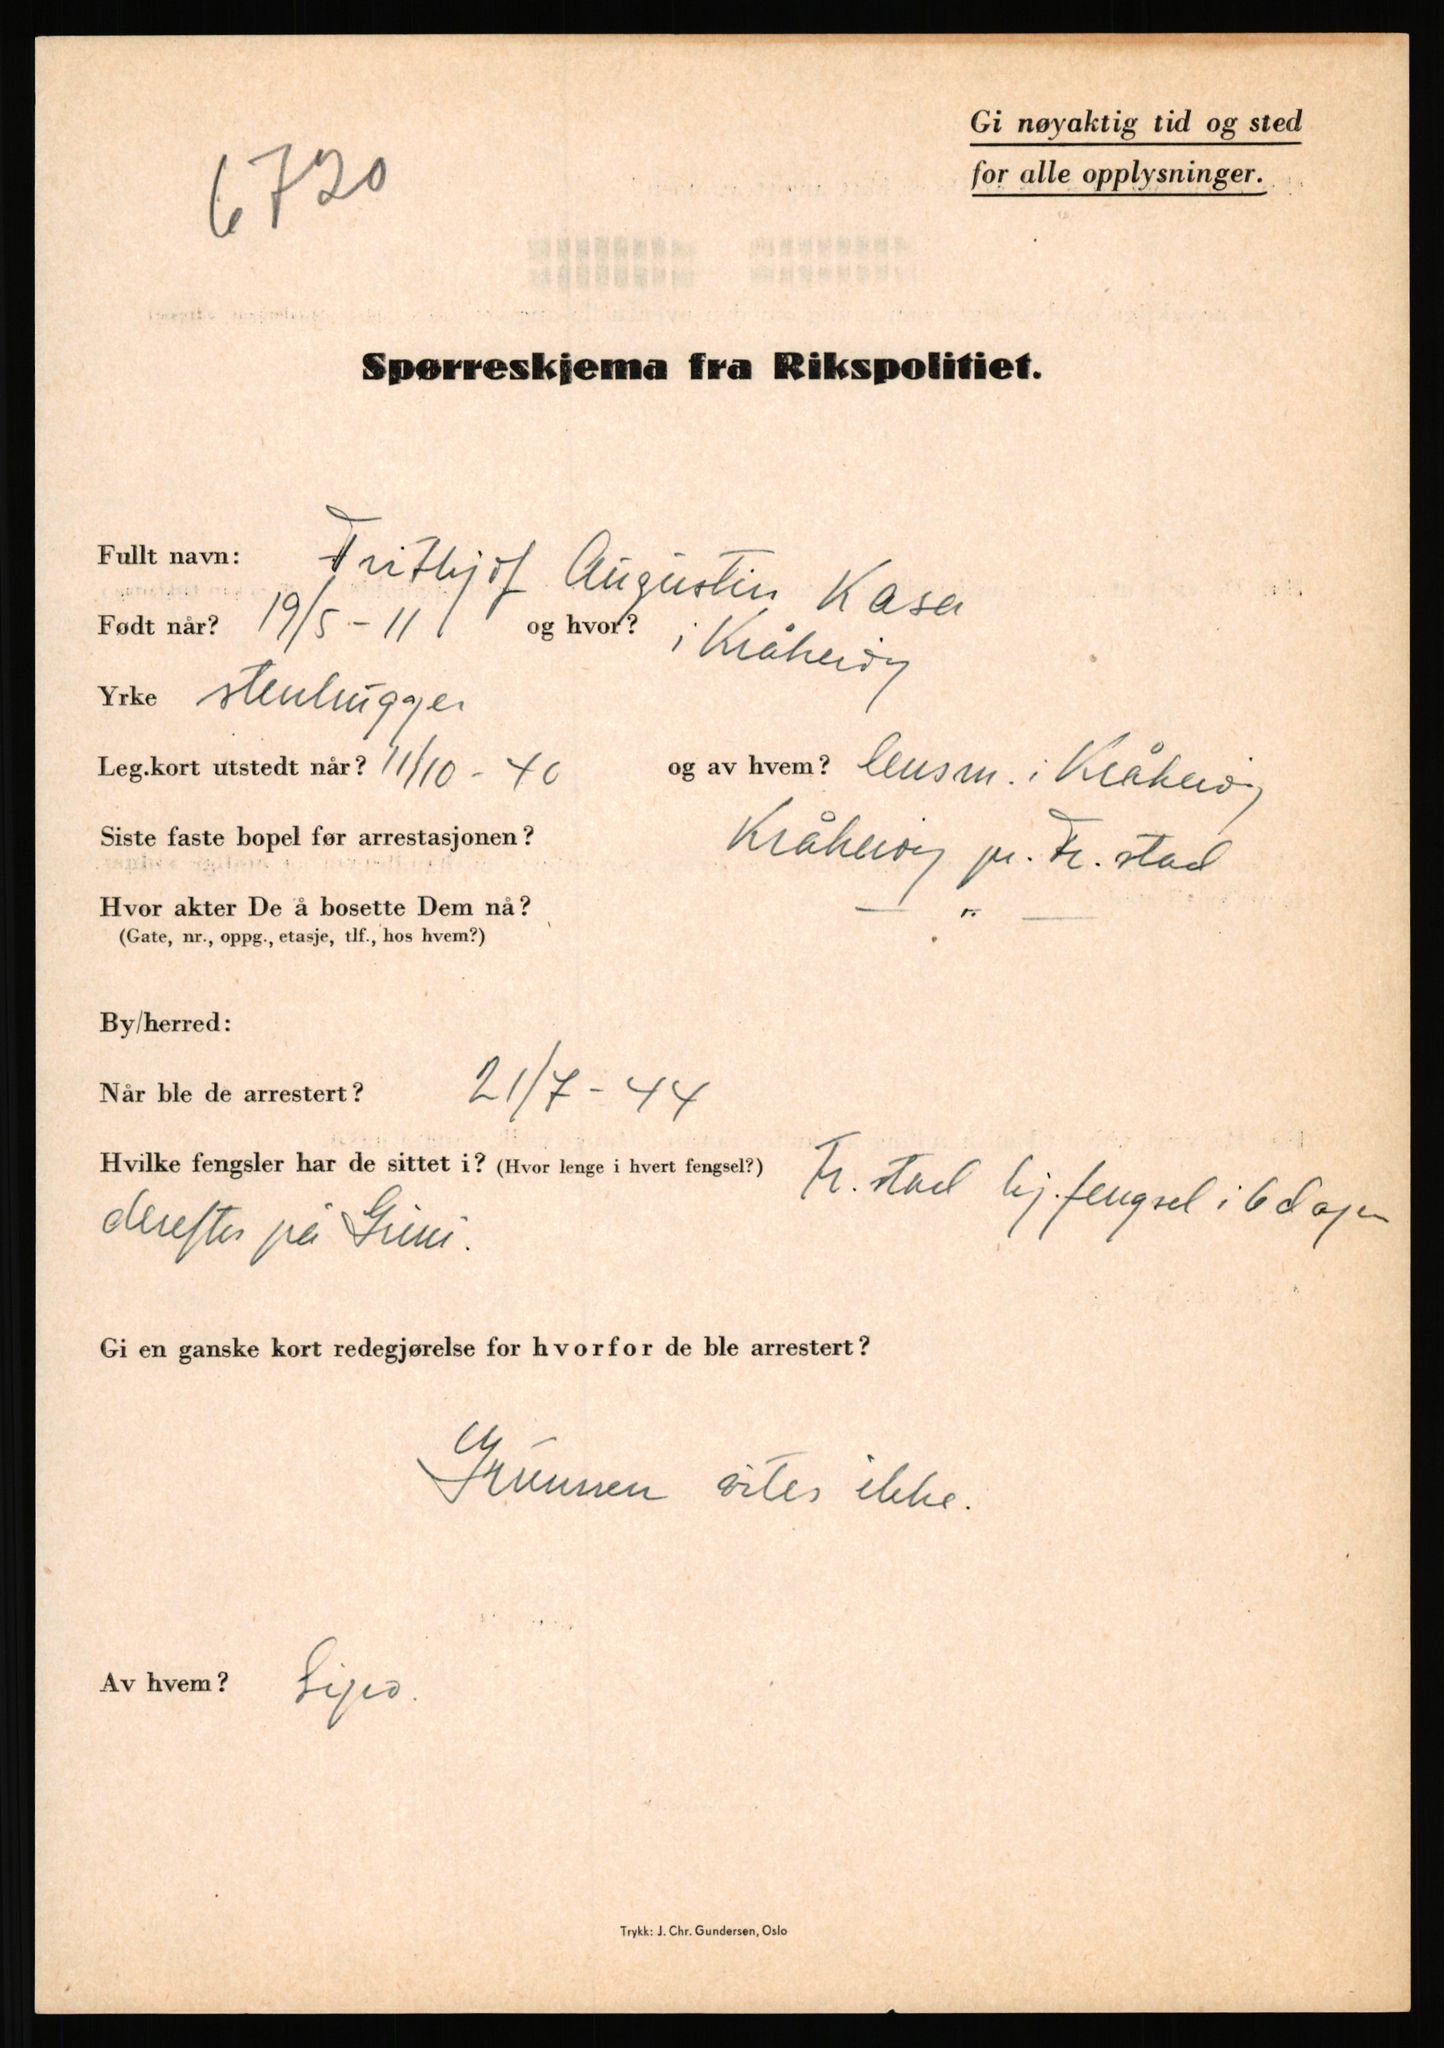 Gi nøyaktig tid og sted
for alle opplysninger.
6720
Spørreskjema fra Rikspolitiet.
Fullt navn: Frithjof Augustin Kasa
Født når? 19/5 - 11 og hvor? i Kråkerøy
Yrke stenhugger
Leg.kort utstedt når? 11/10 - 40 og av hvem? lensm. i Kråkerøy
Siste faste bopel før arrestasjonen? Kråkerøy pr. Fr. stad
Hvor akter De å bosette Dem nå? — " —
(Gate, nr., oppg., etasje, tlf., hos hvem?)
By/herred:
Når ble de arrestert? 21/7 - 44
Hvilke fengsler har de sittet i? (Hvor lenge i hvert fengsel?) Fr. stad hj. fengsel i 6 dager
derefter på Grini.
Gi en ganske kort redegjørelse for hvorfor de ble arrestert?
Grunnen vites ikke.
Av hvem? Sipo.
Trykk: J. Chr. Gundersen, Oslo